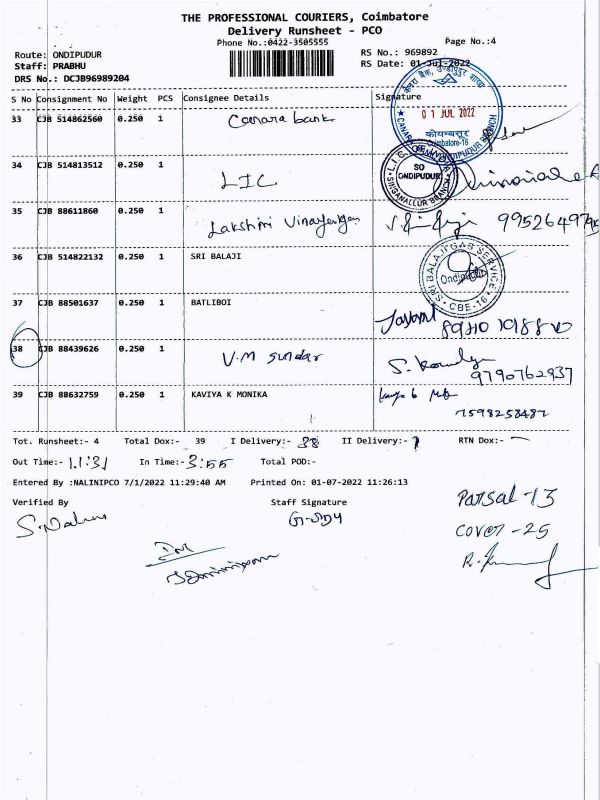 THE PROFESSIONAL COURIERS, Coimbatore
Delivery Runsheet - PCO
Phone No.:0422-3505555 Page No.:4
Route: ONDIPUDUR RS No.: 969892
Staff: PRABHU RS Date: 01-Jul-2022
DRS No.: DCJB96989204
S No Consignment No Weight PCS Consignee Details Signature
33 CJB 514862560 0.250 1 Canara bank
01 JUL 2022
कोयम्बत्तूर
Coimbatore-16
34 CJB 514813512 0.250 1 LIC
SO
ONDIPUDUR
SINGANALLUR BRANCH
35 CJB 88611860 0.250 1 Lakshmi Vinayagar
36 CJB 514822132 0.250 1 SRI BALAJI
SRI BALAJI GAS SERVICE
CBE-16
37 CJB 88501637 0.250 1 BATLIBOI
38 CJB 88439626 0.250 1 V.M sundar
9790762937
39 CJB 88632759 0.250 1 KAVIYA K MONIKA
7598258487
Tot. Runsheet:- 4 Total Dox:- 39 I Delivery:- 38 II Delivery:- 1 RTN Dox:- —
Out Time:- 11:31 In Time:- 3:55 Total POD:-
Entered By :NALINIPCO 7/1/2022 11:29:40 AM Printed On: 01-07-2022 11:26:13
Verified By Staff Signature
Parsal -13
cover -25